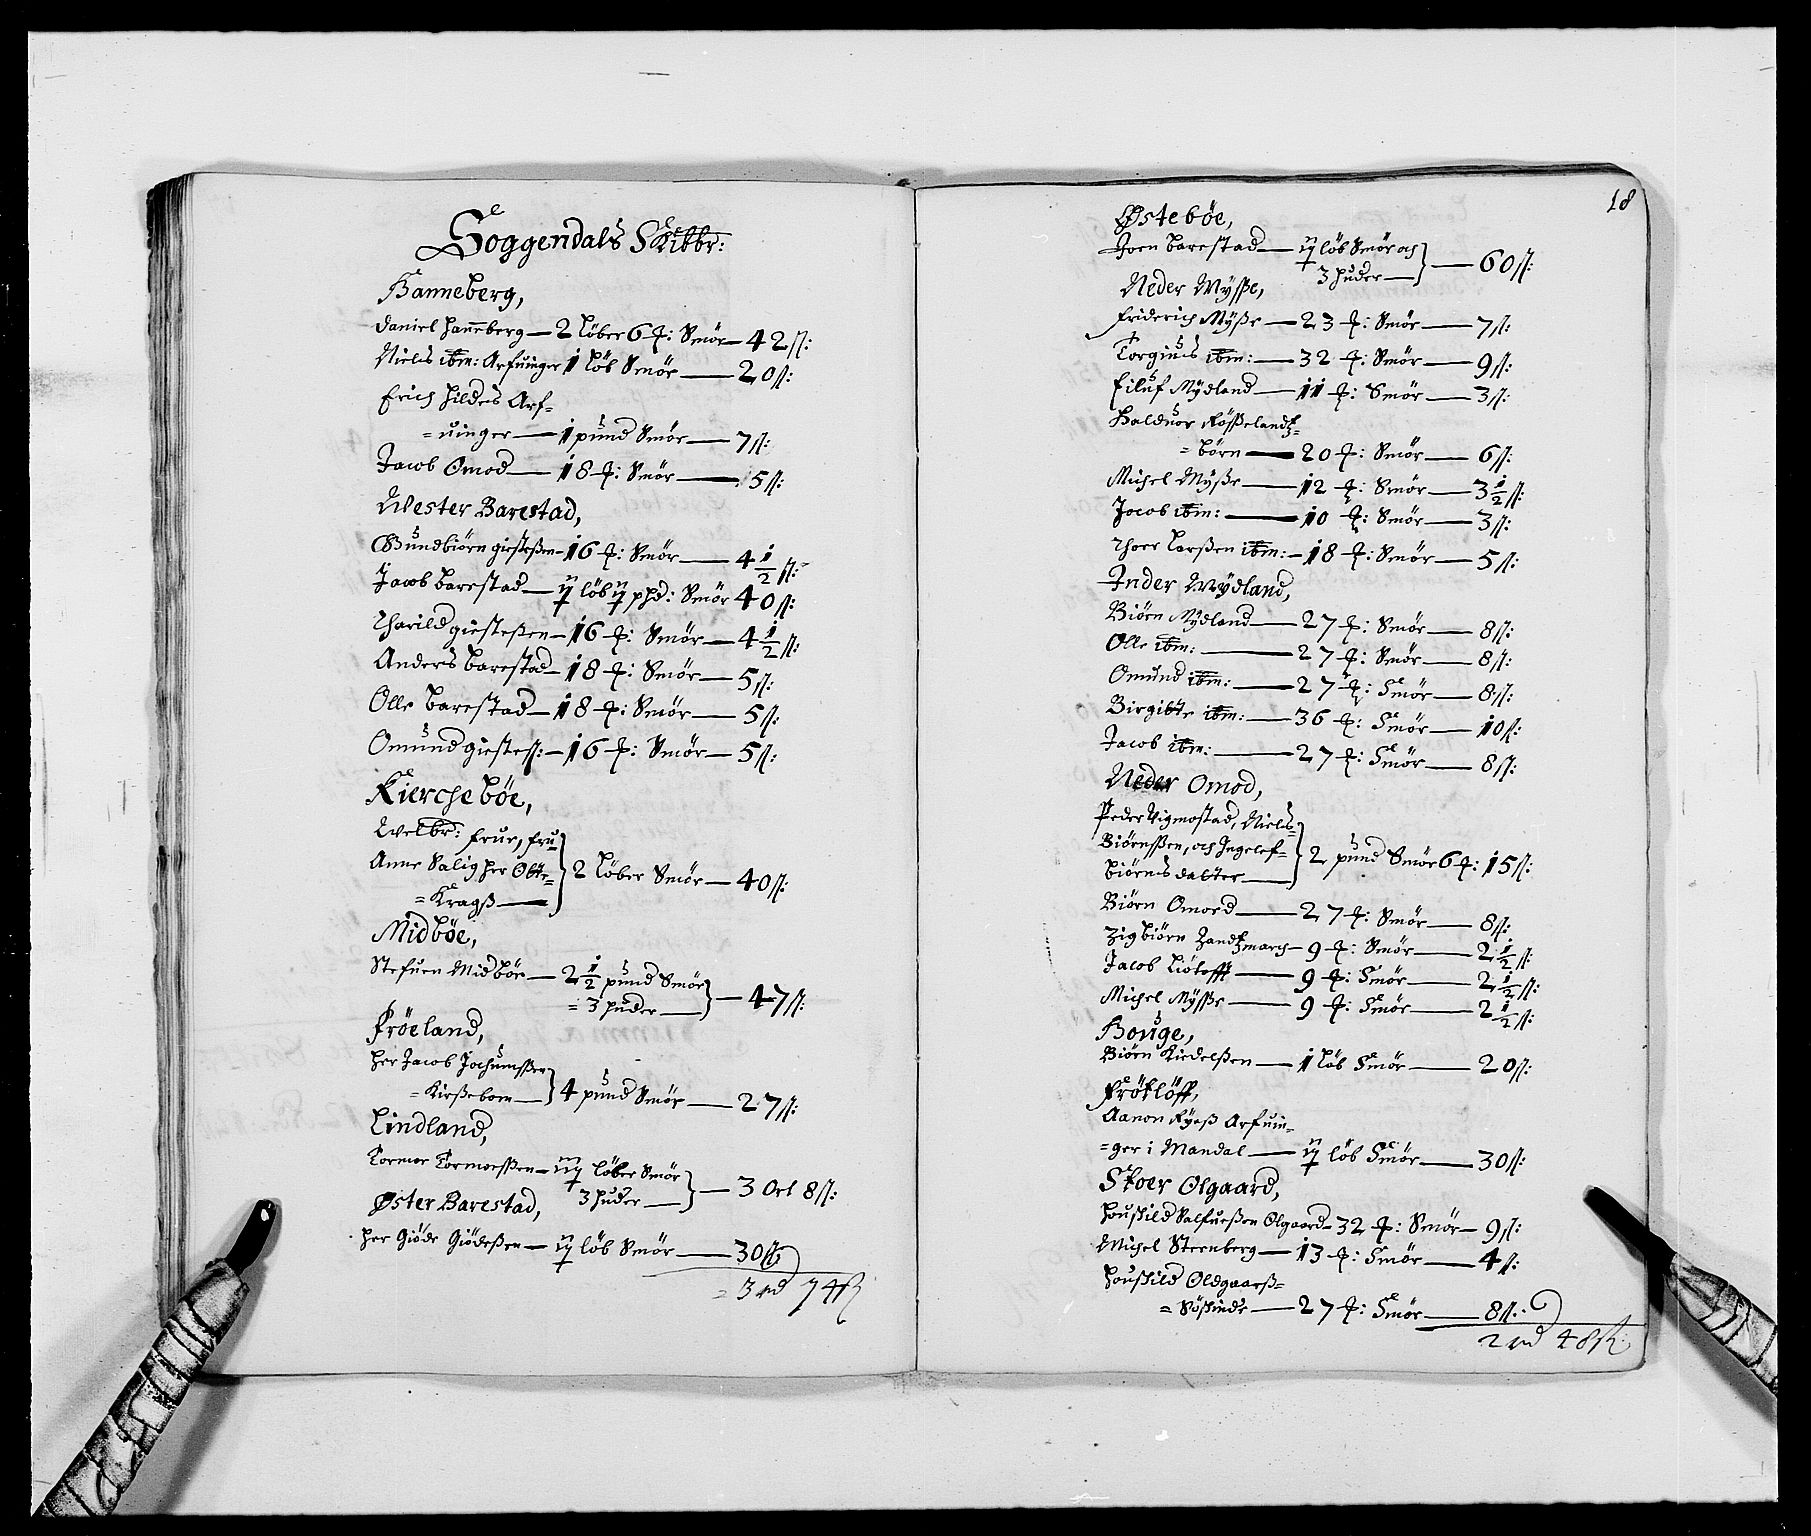 Soggendals Skibbr:
Hanneberg,
Daniel Hanneberg — 2 Løber 6 ℔: Smör — 42 ß:
Niels ibm: Arfuinger 1 Løb Smör — 20 ß:
Erich Hildes Arf=
=uinger — 1 pund Smör — 7 ß:
Jacob Omod — 18 ℔: Smör — 5 ß:
Wester Barestad,
Gundbiörn giestesen — 16 ℔: Smör — 4 1/2 ß:
Jacob Barestad — ij löb ij phd: Smör 40 ß:
Tharild giestesen — 16 ℔: Smör — 4 1/2 ß:
Anders Barestad — 18 ℔: Smör — 5 ß:
Olle Barestad — 18 ℔: Smör — 5 ß:
Omund giesteß: — 16 ℔: Smör — 5 ß:
Kierchebøe,
Welbr: frue, fru
Anne Salig her Otte=
=Kragß — } 2 Löber Smör — 40 ß:
Midbøe,
Stefuen Midböe — 2 1/2 pund Smör
= 3 huder — } — 47 ß:
Fröeland,
Her Jacob Jochumßen
=Kirßebom — } 4 pund Smör — 27 ß:
Lindland,
Tormor Tormoesßen — iij löber Smör
3 huder — } — 3 Ort 8 ß:
Øster Barestad,
Her Giöde Giödeßen — ij löb Smör — 30 ß:
= 3 rd 74 ß
18
Østebøe,
Joen Barestad — ij löb Smör och
3 huder — } — 60 ß:
Neder Mysße,
Friderich Myße — 23 ℔: Smör — 7 ß:
Torgius ibm: — 32 ℔: Smör — 9 ß:
Eiluf Mydland — 11 ℔: Smör — 3 ß:
Halduor Rösßelandtz=
=börn — 20 ℔: Smör — 6 ß:
Michel Myße — 12 ℔: Smör — 3 1/2 ß:
Jocob ibm: — 10 ℔: Smör — 3 ß:
Thoer Larßen ibm: — 18 ℔: Smör — 5 ß:
Inder Mydland,
Biörn Mydland — 27 ℔: Smör — 8 ß:
Olle ibm: — 27 ℔: Smör — 8 ß:
Omund ibm: — 27 ℔: Smör — 8 ß:
Birgitte ibm: — 36 ℔: Smör — 10 ß:
Jacob ibm: — 27 ℔: Smör — 8 ß:
Neder Omod,
Peder Vigmostad, Niels=
Biörnsßen, och Ingelef=
Biörns datter — } 2 pund Smör 6 ℔: 15 ß:
Biörn Omord — 27 ℔: Smör — 8 ß:
Zigbiörn Zandtzmarch — 9 ℔: Smör — 2 1/2 ß:
Jacob Liötofft — 9 ℔: Smör — 2 1/2 ß:
Michel Mysße — 9 ℔: Smör — 2 1/2 ß:
Houge,
Biörn Kiedelßen — 1 Löb Smör — 20 ß:
Frötlöff,
Aanon Ryeß Arfuin=
=ger i Mandal — ij löb Smör — 30 ß:
Stoer Olgaard,
Houskild Salfueßen Olgaard — 32 ℔: Smör — 9 ß:
Michel Sternberg — 13 ℔: Smör — 4 ß:
Houskild Oldgaarß=
=Söskinde — 27 ℔: Smör — 8 ß:
2 rd 48 ß